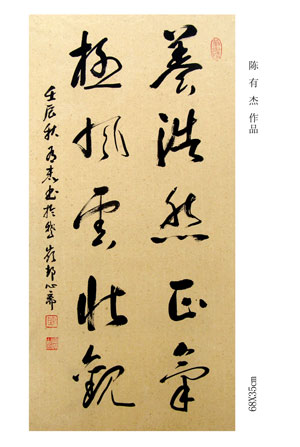 養浩然正氣
極風雲壯觀
壬辰秋有杰书於
陈有杰作品
68X35cm